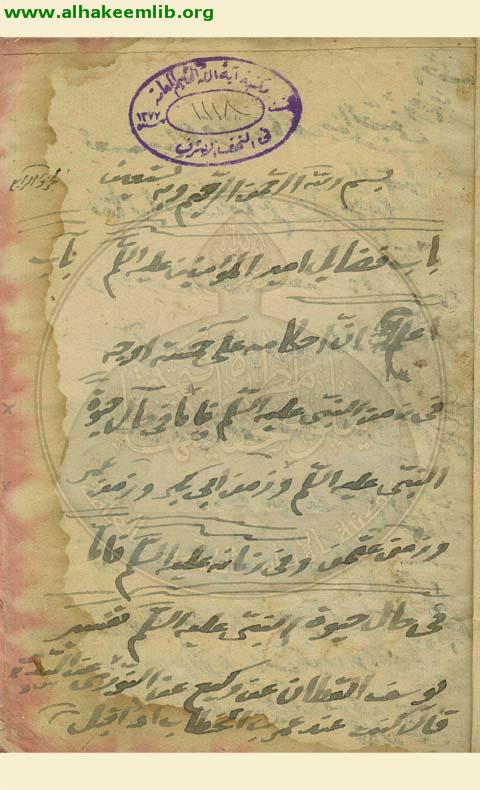 www.alhakeemlib.org
مكتبة آية الله الحكيم العامة
١١١٨
١٣٧٧
في النجف الاشرف
بسم الله الرحمن الرحيم وبه نستعين
باب فضايل امير المؤمنين عليه السلم باب
اعلم ان احكامه على خمسة اوجه
في زمن النبي عليه السلم فاما في حال حيوة
النبي عليه السلم وزمن ابي بكر وزمن عمر
وزمن عثمن وفي زمانه عليه السلم فاما
في حال حيوة النبي عليه السلم تفسير
يوسف القطان عن وكيع عن الثوري عن
قال كنت عند عمر بن الخطاب اذ اقبل